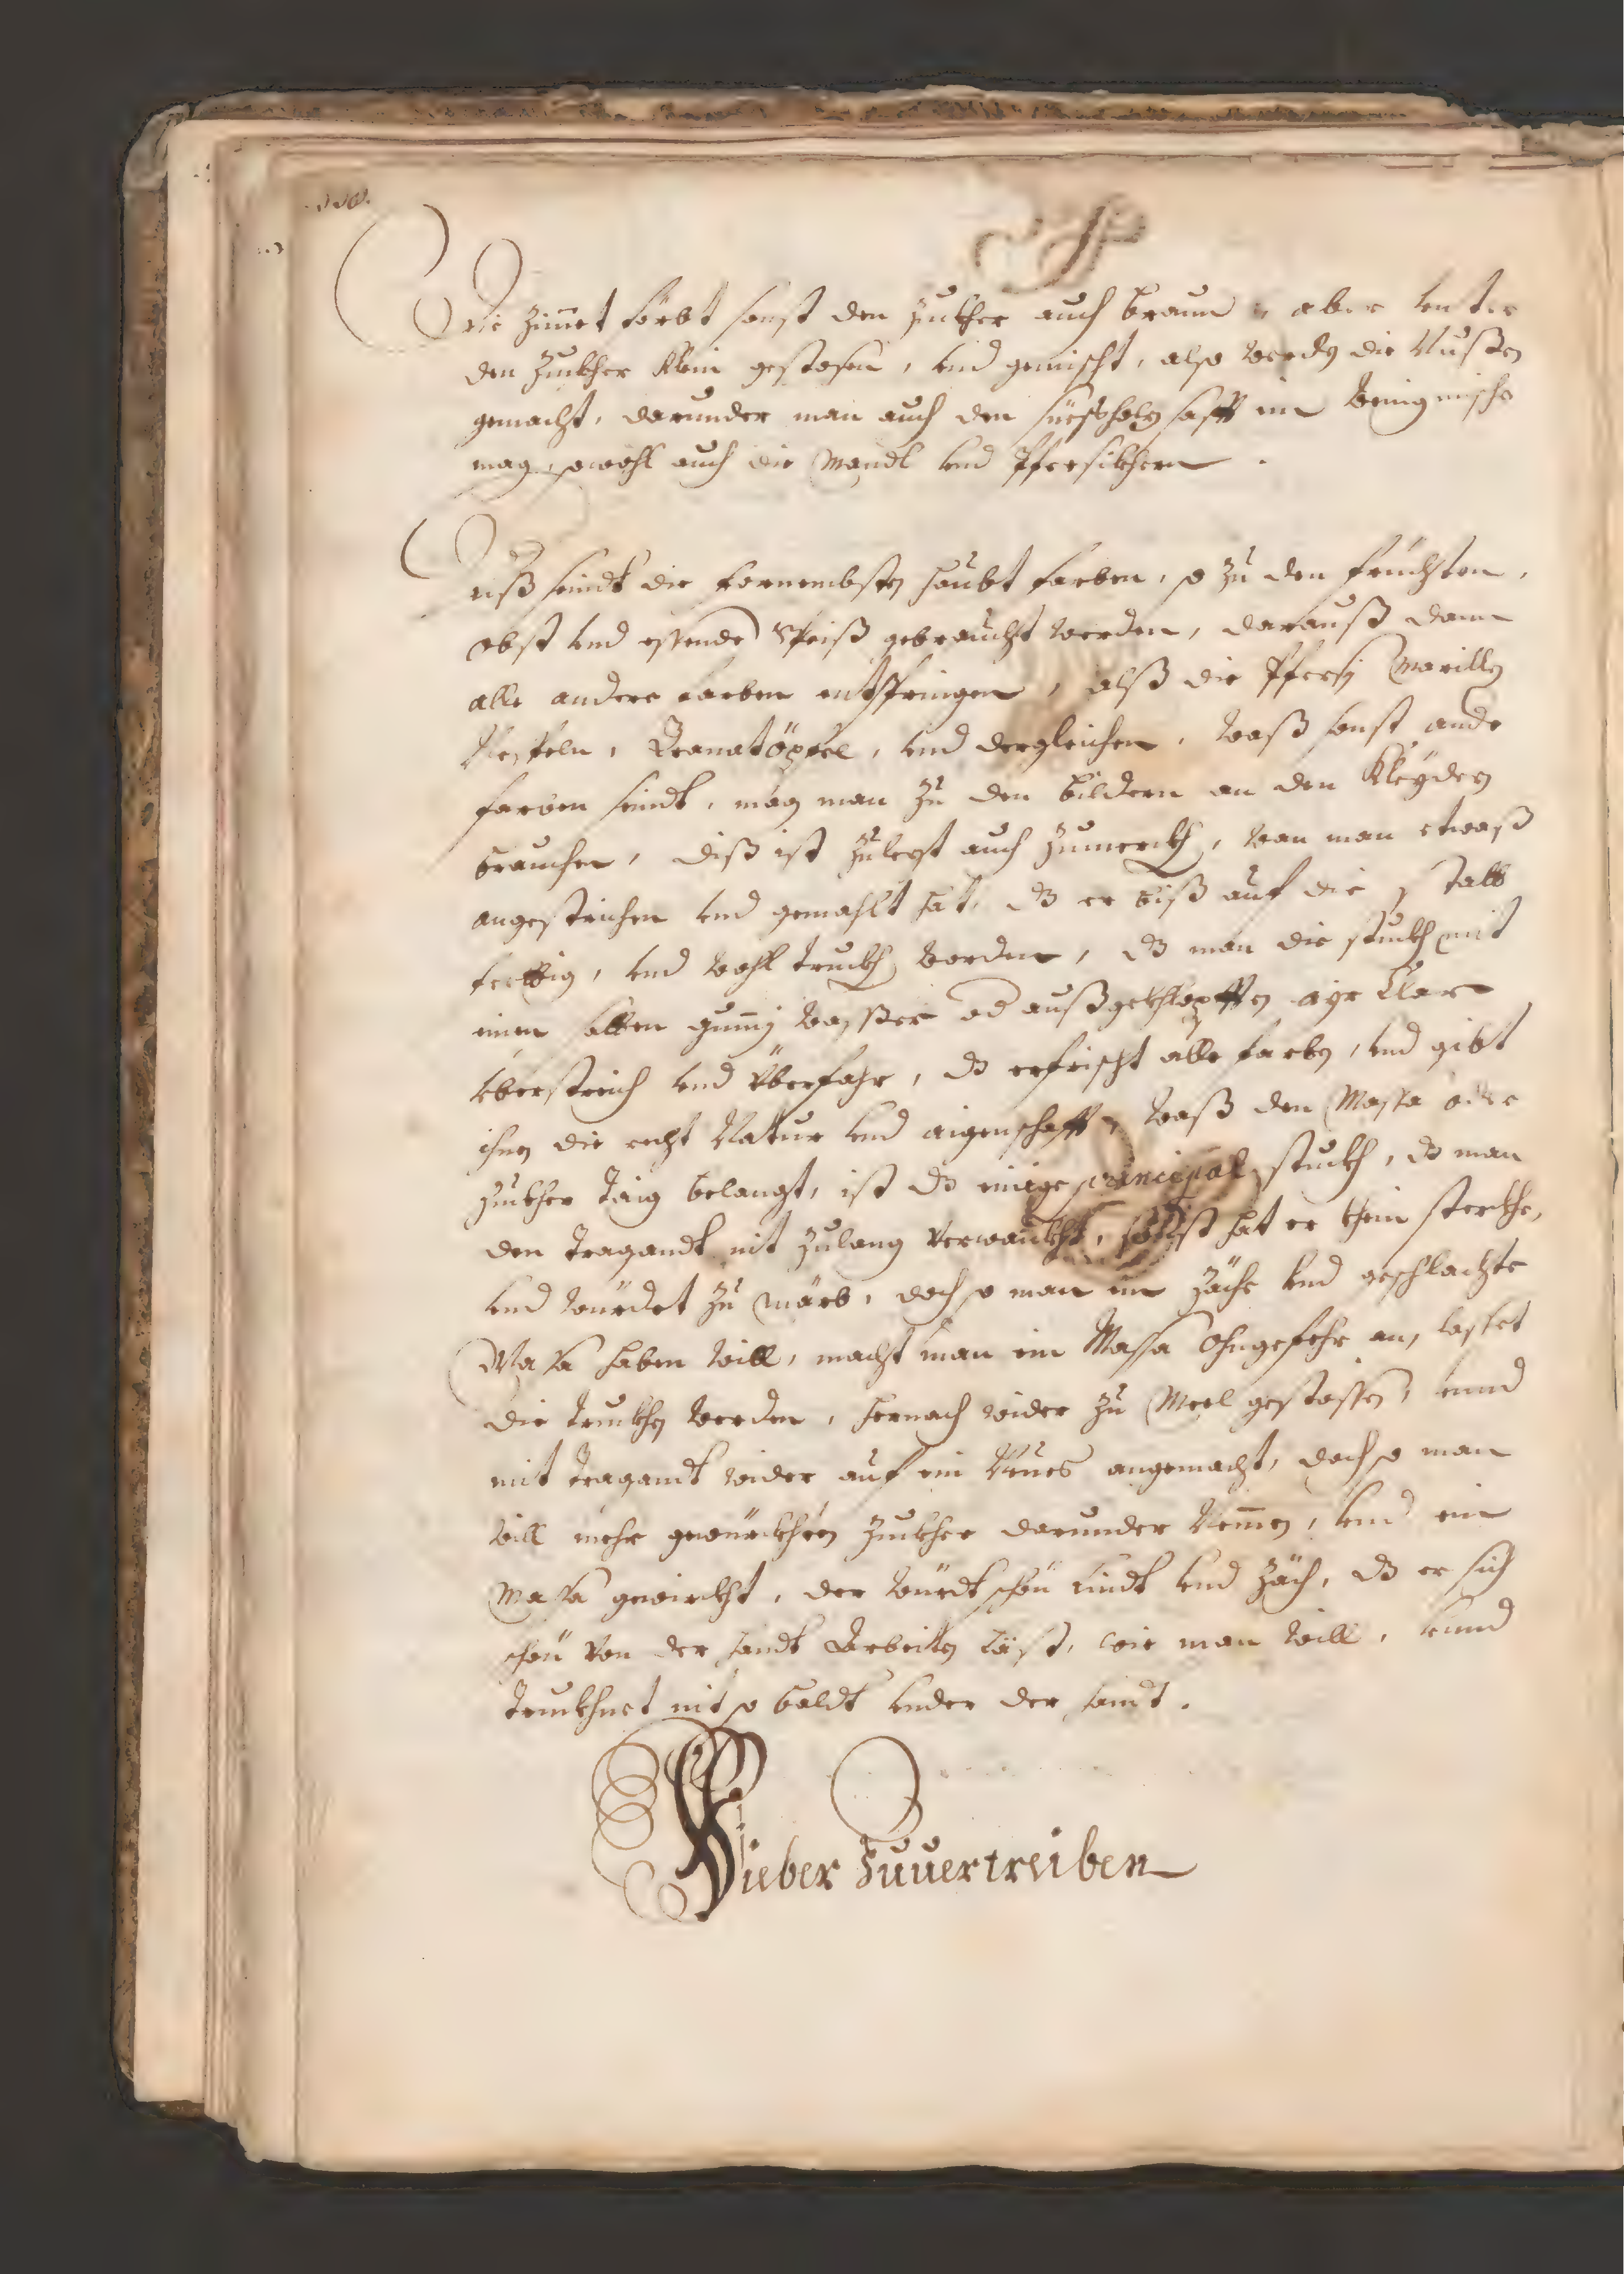 F
Die Zimet förbt sonst den Zuckher auch braun, aber vnter
den Zuckher klein gestosen, vnd gemischt, also werdn die Nusßen
gemacht, darunder man auch den süeßholz safft ein wenig mische
mag, sowohl auch die Mandl vnd Pfersikhern.
diß seindt die fornembsten haubt farben, so zu den früchten,
obst vnd essende Speiß gebraucht werden, darauß dann
alle andere farben entspringen, alß die Pfersi Marilln
Nespeln, Granatöpfel, vnd dergleichen, waß sonst ande
farben seindt, mag man zu den bildern an den Kleyden
brauchen, diß ist zulest auch zumerckh, wan man etwaß
angestrichen vnd gemahlt hat, dz er biß auf die statt
ferttig, vnd wohl truckh worden, dz man die stuckh mit
einen gummj wasser od außgekhlopfften ayr Clar
vberstreich vnd vberfahr, dz erfrischt alle farbn, vnd gibt
ihnen die recht Natur vnd aigenschafft, waß den Massa oder
Zuckher Taig belangt, ist dz einige principal stuckh, dz man
den tragandt nit zulang verwaickht, sonst hat er khein sterckhe,
vnd würdet zu märb, doch so man ein zäche vnd geschlachte
Massa haben will, macht man ein Massa ohngefehr an, lasset
die truckhn werden, hernach wider zu Meel gestossen, vnnd
mit tragandt wider auf ein Neues angemacht, doch so man
will mehr gewürckhten Zuckher darunder Nemmen, vnd ein
Massa gewirckht, der würdt schön lindt vnd zäch, dz er sich
schön von der handt Arbeitten läst, wie man will, vnnd
truckhnet nit so baldt vnder der handt.
Fieber Zuuertreiben